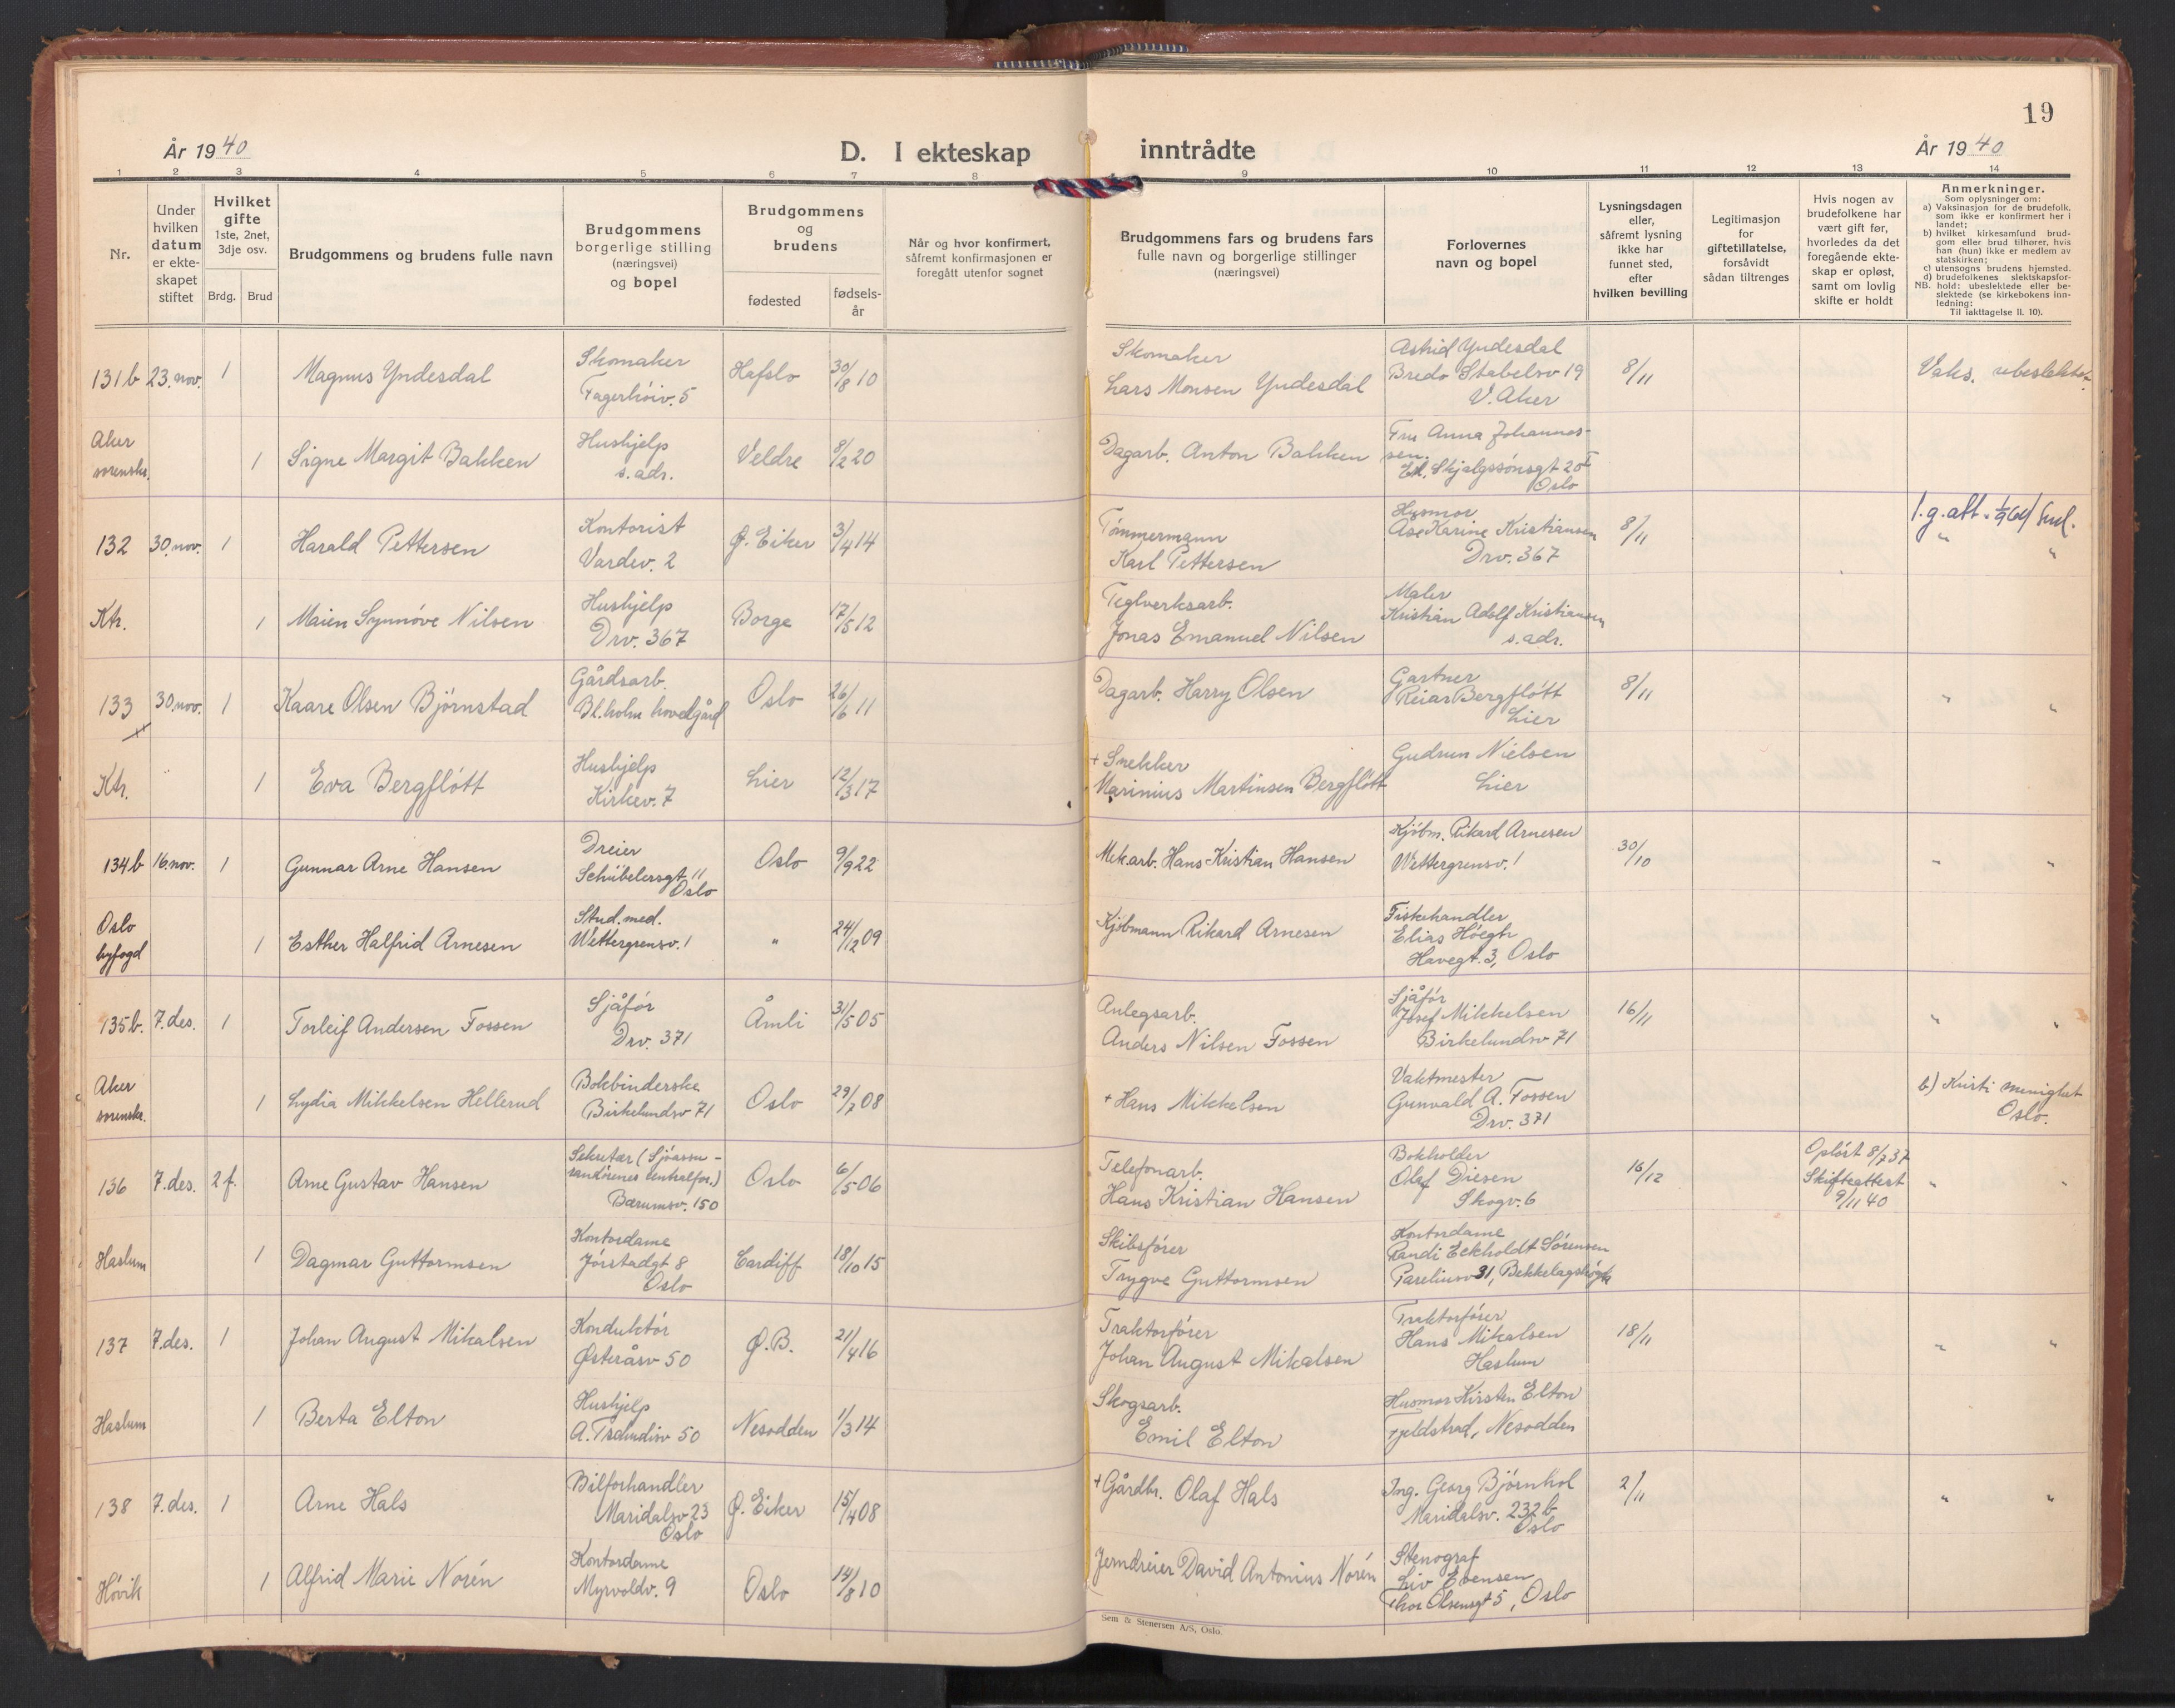 19
År 1940
D. I ekteskap inntrådte
År 1940
1 2 3 4 5 6 7 8 9 10 11 12 13 14
Nr.
Under hvilken datum er ekte-skapet stiftet
Hvilket gifte 1ste, 2net, 3dje osv.
Brdg. Brud
Brudgommens og brudens fulle navn
Brudgommens borgerlige stilling (næringsvei) og bopel
Brudgommens og brudens
fødested
fødsels-år
Når og hvor konfirmert, såfremt konfirmasjonen er foregått utenfor sognet
Brudgommens fars og brudens fars fulle navn og borgerlige stillinger (næringsvei)
Forlovernes navn og bopel
Lysningsdagen eller, såfremt lysning ikke har funnet sted, efter hvilken bevilling
Legitimasjon for giftetillatelse, forsåvidt sådan tiltrenges
Hvis nogen av brudefolkene har vært gift før, hvorledes da det foregående ekte-skap er opløst, samt om lovlig skifte er holdt
Anmerkninger.
Som oplysninger om:
a) Vaksinasjon for de brudefolk, som ikke er konfirmert her i landet;
b) hvilket kirkesamfund brud-gom eller brud tilhører, hvis han (hun) ikke er medlem av statskirken;
c) utensogns brudens hjemsted.
d) brudefolkenes slektskapsfor-hold: ubeslektede eller be-slektede (se kirkebokens inn-ledning:
NB.
Til iakttagelse II. 10).
131b 23. nov. 1 Magnus Yndesdal Skomaker Fagerhöiv. 5 Hafslo 30/8 10 Skomaker Lars Monsen Yndesdal Astrid Yndesdal Bredo Stabelsv 19 V. Aker 8/11 Vaks. ubeslektet.
Aker sorenskr. 1 Signe Margit Bakken Hushjelp s. adr. Veldre 8/2 20 Dagarb. Anton Bakken Fru Anna Johannes-sen. Skjalgssönsgt 20 Oslo
132 30. nov. 1 Harald Pettersen Kontorist Vardev. 2 Ø. Eiker 3/4 14 Tömmermann Karl Pettersen Husmor Åse Karine Kristiansen Drv. 367 8/11 l.g. att. 1/9 64 " "
Ktr. 1 Maien Synnöve Nilsen Hushjelp Drv. 367 Borge 17/5 12 Teglverksarb. Jonas Emanuel Nilsen Maler Kristian Adolf Kristiansen s. adr.
133 x 30. nov. 1 Kaare Olsen Bjørnstad Gårdsarb. Bl.holm hovedgård Oslo 26/6 11 Dagarb. Harry Olsen Gartner Reiar Bergflött Lier 8/11 " "
Ktr. 1 Eva Bergflött Hushjelp Kirkev. 7 Lier 12/3 17 + Snekker Marinius Martinsen Bergflött Gudrun Nielsen Lier
134b 16. nov. 1 Gunnar Arne Hansen Dreier Schübelersgt 11 Oslo Oslo 9/9 22 Mek.arb. Hans Kristian Hansen Kjöbm. Rikard Arnesen Wettergrensv. 1 30/10 " "
Oslo byfogd 1 Esther Halfrid Arnesen Stud. med. Wettergrensv. 1 " 24/12 09 Kjöbmann Rikard Arnesen Fiskehandler Elias Höegh Havegt. 3, Oslo
135b. 7. des. 1 Torleif Andersen Fossen Sjåför Drv. 371 Åmli 31/5 05 Anlegsarb. Anders Nilsen Fossen Sjåför Josef Mikkelsen Birkelundsv 71 16/11 " "
Aker sorenskr. 1 Lydia Mikkelsen Hellerud Bokbinderske Birkelundsv 71 Oslo 29/7 08 + Hans Mikkelsen Vaktmester Gunvald A. Fossen Drv. 371 b) Kristi menighet Oslo.
136 7. des. 2 f. Arne Gustav Hansen Sekretær (Sjöassu-randörenes centralfor.) Bærumsv. 150 Oslo 6/5 06 Telefonarb. Hans Kristian Hansen Bokholder Olaf Diesen Skogv. 6 16/12 Oplöst 8/7 37 Skifteattest 9/11 40 " "
Haslum 1 Dagmar Guttormsen Kontordame Jörstadgt 8 Oslo Cardiff 18/10 15 Skibsförer Trygve Guttormsen Kontordame Randi Eckholdt Sörensen Pareliusv 31, Bekkelagshögda
137 7. des. 1 Johan August Mikalsen Konduktör Østeråsv 50 Ø.B. 21/4 16 Traktorförer Johan August Mikalsen Traktorförer Hans Mikalsen Haslum 18/11 " "
Haslum 1 Berta Elton Hushjelp A. Tschudisv 50 Nesodden 1/3 14 Skogsarb. Emil Elton Husmor Kirsten Elton Fjeldstrad, Nesodden
138 7. des. 1 Arne Hals Bilforhandler Maridalsv 23 Oslo Ø. Eiker 15/4 08 + Gårdbr. Olaf Hals Ing. Georg Björnhol Maridalsv. 232 b Oslo 2/11 " "
Hövik 1 Alfrid Marie Norén Kontordame Myrvoldv. 9 Oslo 14/8 10 Jerndreier David Antonius Norén Stenograf Liv Evensen Thor Olsensgt 5, Oslo
Sem & Stenersen A/S, Oslo.